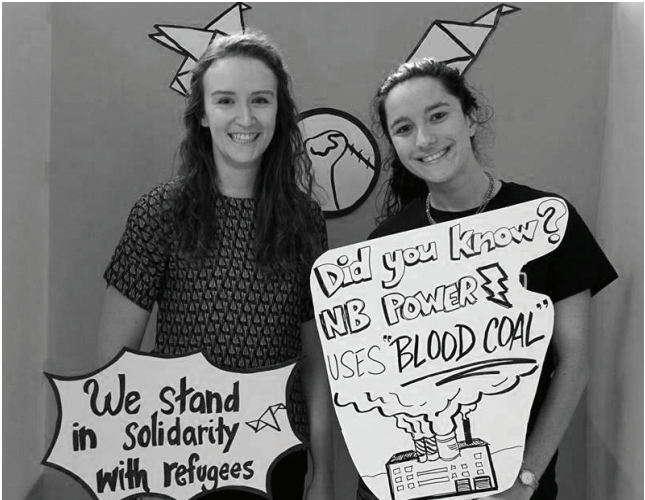 We stand
in solidarity
with refugees
Did you know?
NB POWER
USES "BLOOD COAL"